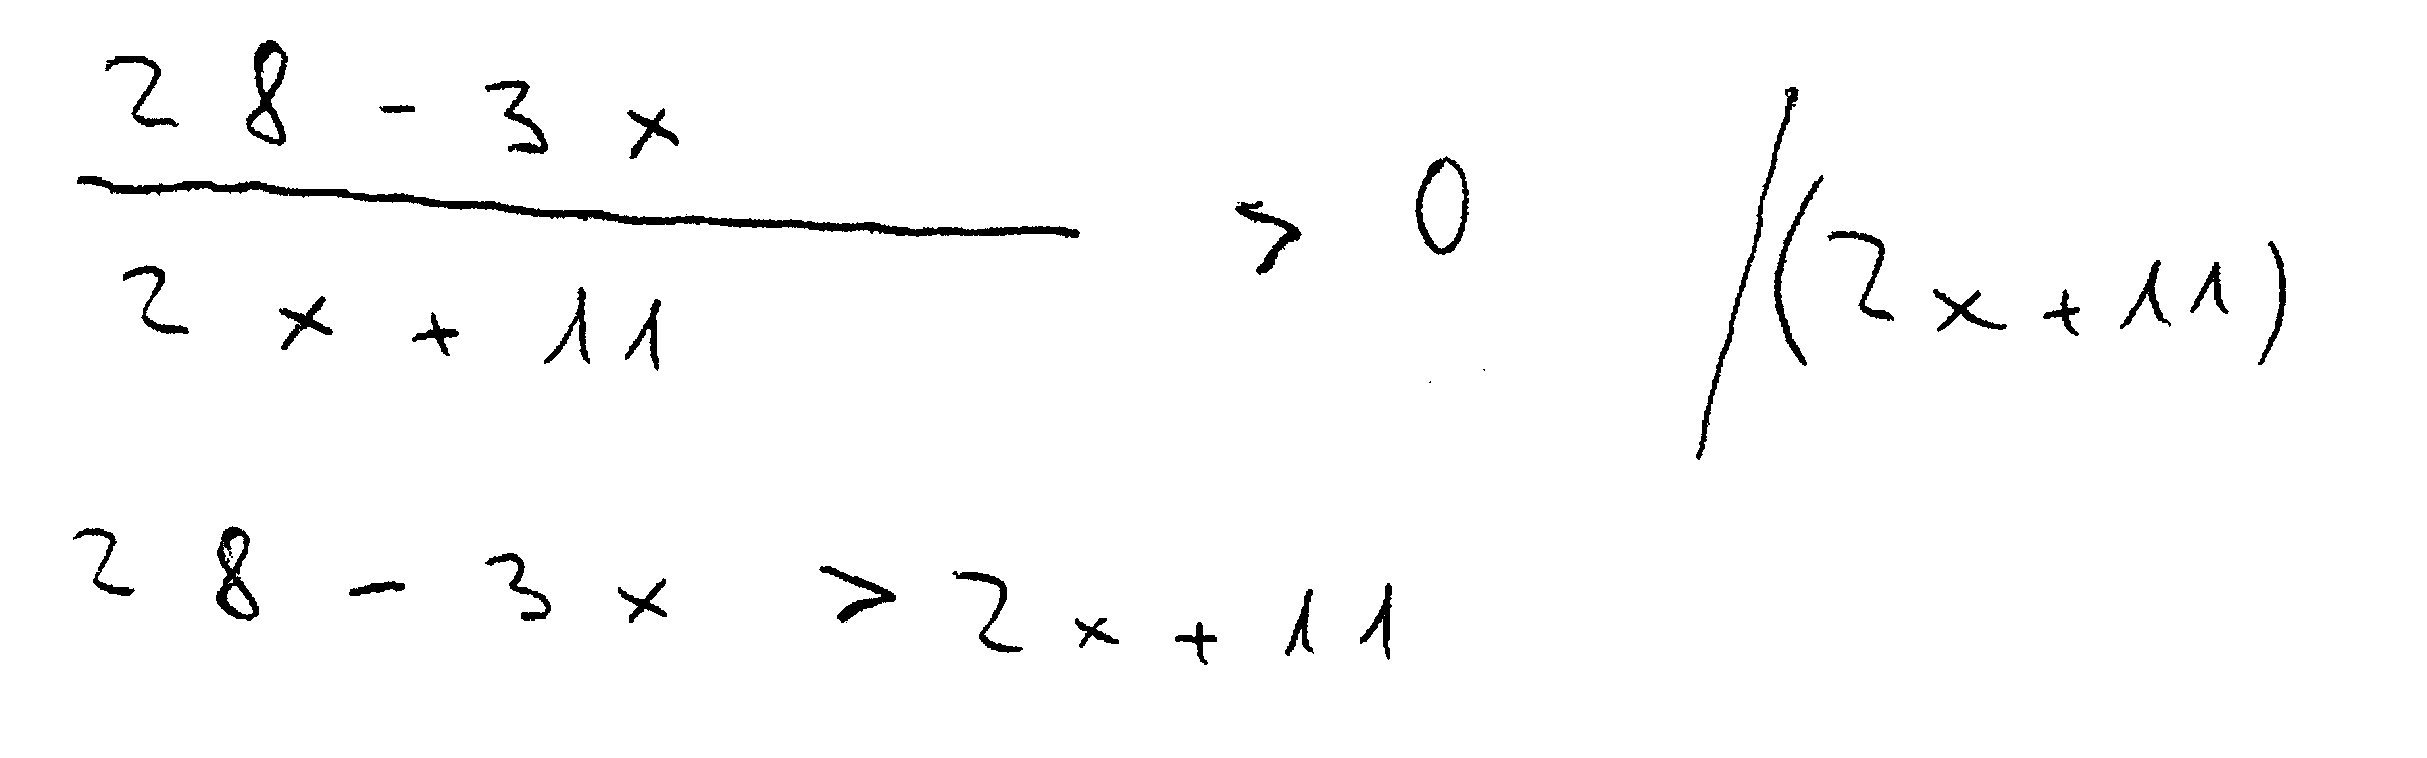 \frac{28 - 3x}{2x + 11} > 0 /(2x + 11)
28 - 3x > 2x + 11